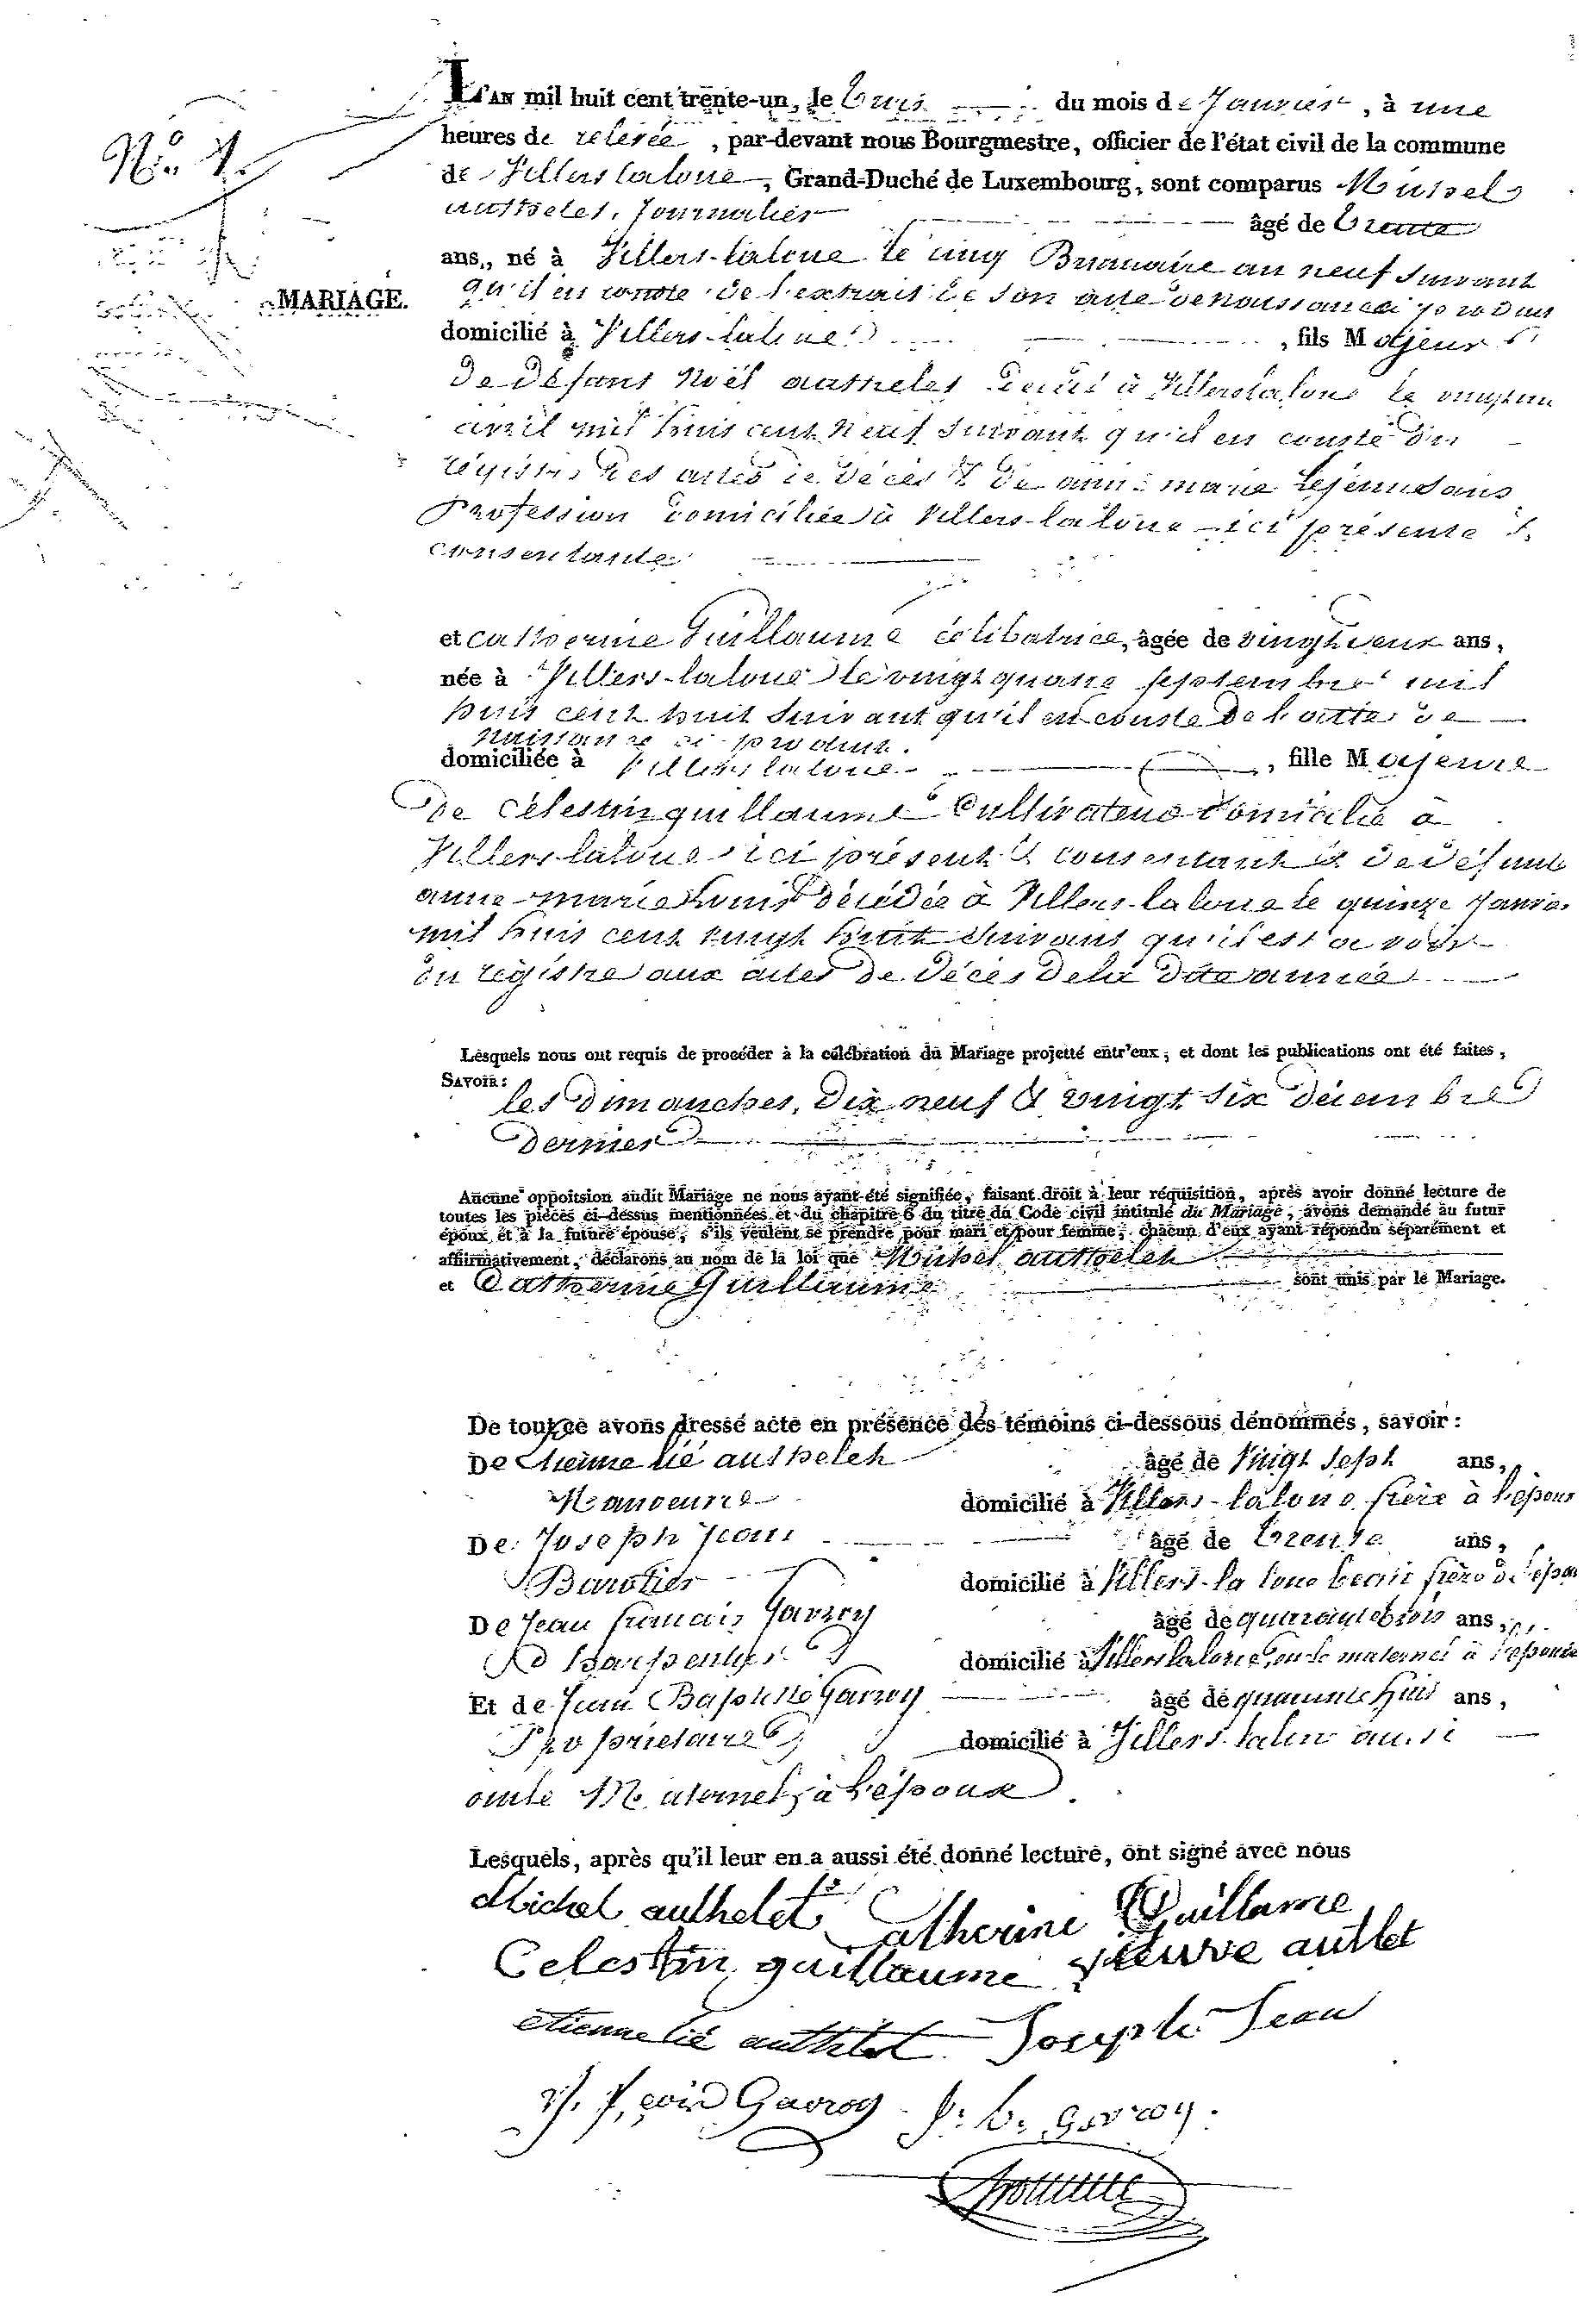 L'AN mil huit cent trente-un, le trois du mois de Janvier, à une
N.o 1.
heures de relevée, par-devant nous Bourgmestre, officier de l'état civil de la commune
de Villers laloue, Grand-Duché de Luxembourg, sont comparus Michel
authelet, Journalier âgé de trente
ans, né à Villers-laloue le cinq Brumaire an neuf suivant
qu'il en conste de l'extrait de son acte de naissance ci produit
MARIAGE.
domicilié à Villers-laloue, fils Majeur
de défunt Noël authelet décédé à Villerslaloue le
avril mil huit cent neuf suivant qu'il en conste du
régistre des actes de décès & de anne marie Lejeune sans
profession domiciliée à Villers-laloue ici présente &
consentante
et catherine Guillaume célibatrice, âgée de vingt deux ans,
née à Villers-laloue le vingt quatre septembre mil
huit cent huit suivant qu'il en conste de l'acte de
naissance ci produit.
domiciliée à Villers laloue, fille Majeure
de célestin guillaume Cultivateur domicilié à
Villers laloue ici présent & consentant & de défunte
anne-marie décédée à Villers-laloue le quinze Janvier
mil huit cent vingt huit suivant qu'il est a voir
du régistre aux actes de décès de la dite année
Lesquels nous ont requis de procéder à la célébration du Mariage projetté entr'eux, et dont les publications ont été faites,
SAVOIR:
les dimanches, dix neuf & vingt six décembre
dernier
Aucune oppoitsion audit Mariage ne nous ayant été signifiée, faisant droit à leur réquisition, après avoir donné lecture de
toutes les pièces ci-dessus mentionnées et du chapitre 6 du titre du Code civil intitulé du Mariage, avons demandé au futur
époux et à la future épouse, s'ils veulent se prendre pour mari et pour femme, chacun d'eux ayant répondu séparément et
affirmativement, déclarons au nom de la loi que Michel authelet
et Catherine Guillaume sont unis par le Mariage.
De tout ce avons dressé acte en présence des témoins ci-dessous dénommés, savoir:
De etienne lié authelet âgé de vingt sept ans,
Manoeuvre domicilié à Villers-laloue frère à l'époux
De Joseph Jean âgé de trente ans,
domicilié à Villers-la loue beau frère
De Jean francois Gavroy âgé de quarante trois ans,
Charpentier domicilié à Villerslaloue, oncle maternel à
Et de Jean Baptiste Gavroy âgé de quarante huit ans,
Propriétaire domicilié à Villers-laloue aussi
oncle Maternel à l'époux.
Lesquels, après qu'il leur en a aussi été donné lecture, ont signé avec nous
Michel authelet Catherine Guillame
Celestin guillaume veuve autlet
etienne lié authlet Joseph Jean
J. f, çois Gavroy J: b: Gavroy.